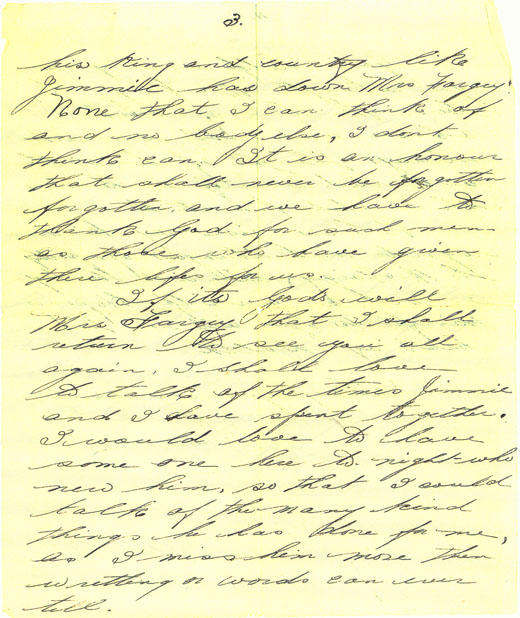 3.
his King and country like
Jimmie has down Mrs Fargey?
None that I can think of
and no body else, I dont
think can. It is an honour
that shall never be forgotten
forgotten. and we have to
thank God for such men
as those, who have given
there lifes for us.
If its Gods will
Mrs Fargey that I shall
return to see you all
again, I shall love
to talk of the times Jimmie
and I have spent together.
I would love to have
some one here to night who
new him, so that I could
talk of the many kind
things he has done for me,
as I miss him more then
writting or words can ever
tell.